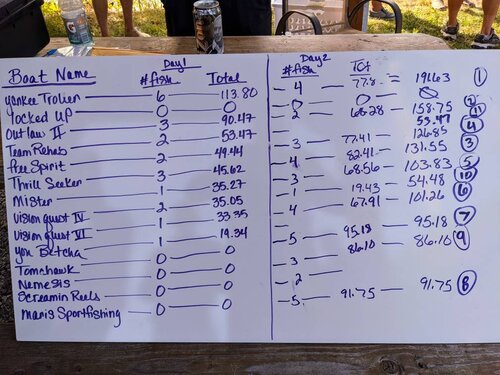 Day1
Boat Name #fish Total
Yankee Trolier 6 113.80
Yocked Up 0 0
Outlaw II 3 90.47
Team Rehab 2 53.47
Free Spirit 2 49.44
Thrill Seeker 3 45.62
Mister 1 35.27
Vision Quest IV 2 35.05
Vision Quest VI 1 33.35
You Betcha 1 19.34
Tomahawk 0 0
Nemesis 0 0
Screamin Reels 0 0
Manis Sportfishing 0 0
Day2
#fish TOT
4 77.8 = 196.63 1
0 0 0
2 68.28 158.75 2
53.47 11
126.85 4
3 77.41 131.55 3
4 82.41
3 68.56 103.83 5
1 19.43 54.48 10
4 67.91 101.26 6
5 95.18 95.18 7
3 86.10 86.10 9
2
5 91.75 91.75 8